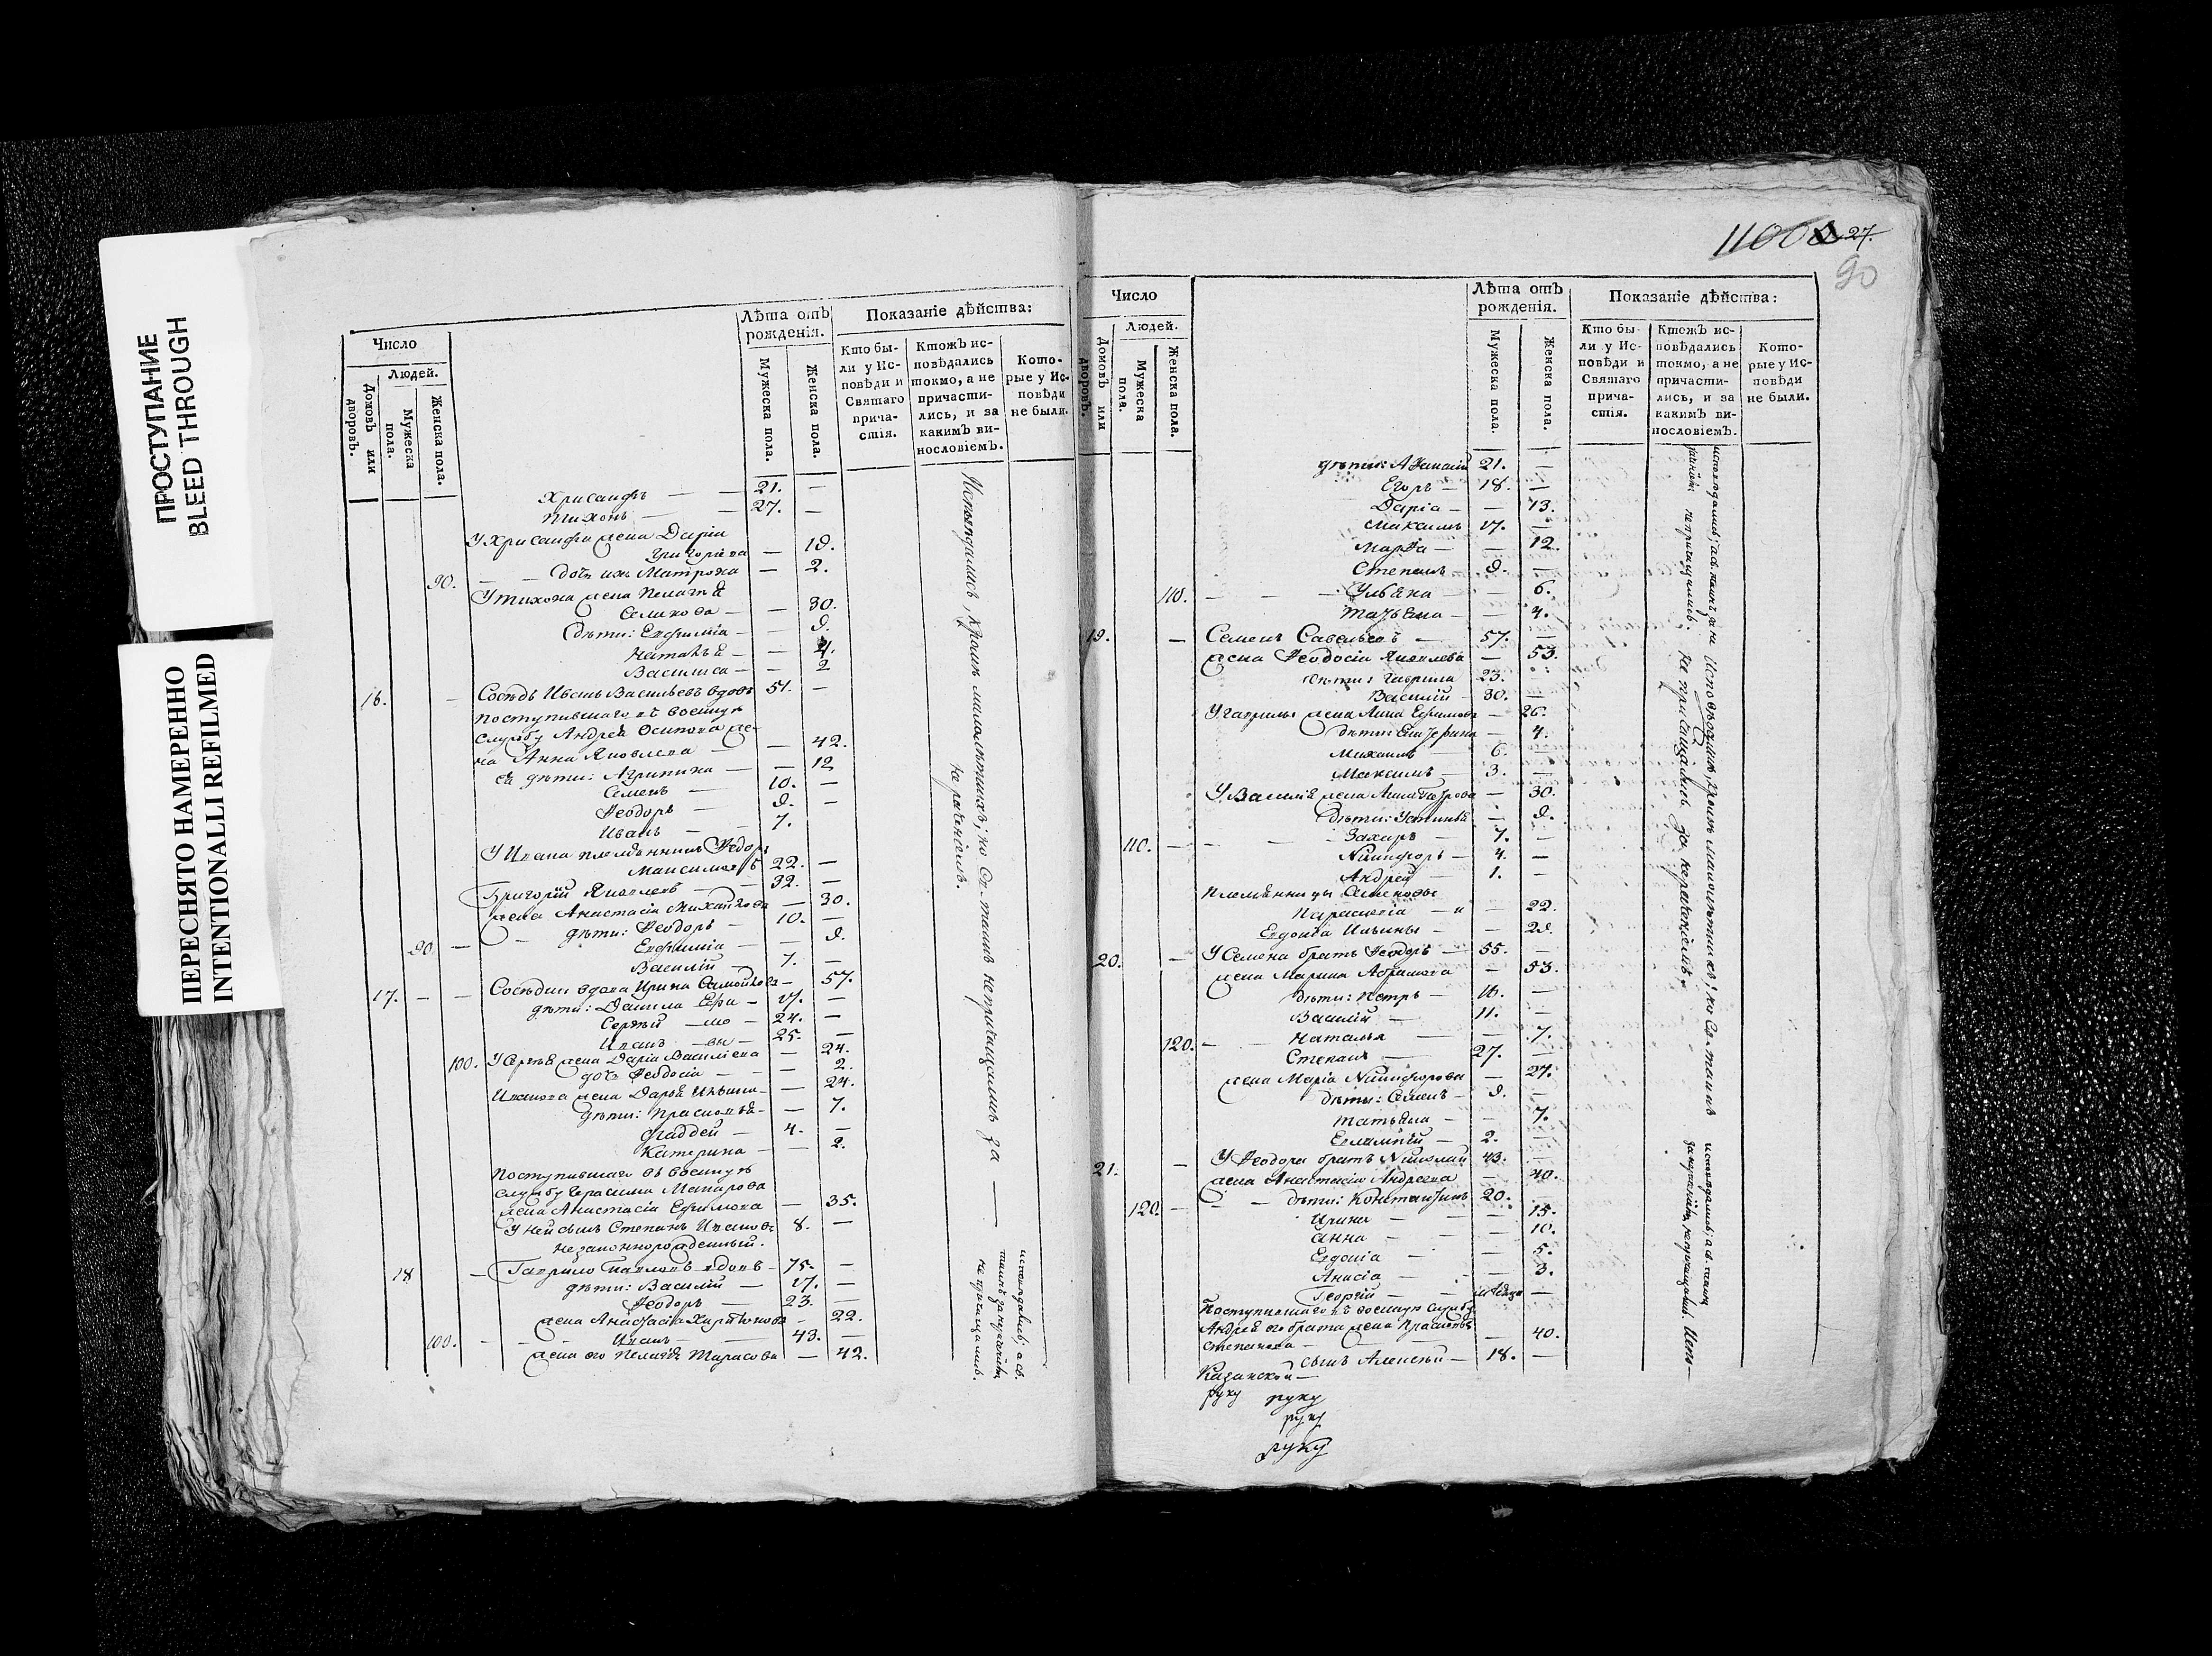 ПРОСТУПАНИЕ
BLEED THROUGH
ПЕРЕСНЯТО НАМЕРЕННО
INTENTIONALLI REFILMED
Число
Людей.
Домовъ или дворовъ.
Мужеска пола.
Женска пола.
Лѣта отъ рожденія.
Мужеска пола.
Женска пола.
Показаніе дѣйства:
Кто бы-
ли у Ис-
повѣди и
Святаго
прича-
стія.
Ктожъ ис-
повѣдались
токмо, а не
причасти-
лись, и за
какимъ ви-
нословіемъ.
Кото-
рые у Ис-
повѣди
не были.
Хрисанфъ — 21. —
Тихонъ — 27. —
У Хрисанфа жена Дарія
Григорьева — 19.
90. — дочь ихъ Матрона — 2.
У Тихона жена Пелагѣя
— 30.
дѣти: Евфимія — 9.
Наталья — 4.
Василиса — 2
16. — Сосѣдъ Иванъ Васильевъ вдовъ 51. —
поступившаго въ военную
службу Андрея Осипова же-
на Анна Яковлева — 42.
ея дѣти: Агрипина — 12
Семенъ — 10. —
Ѳеодоръ — 9. —
Иванъ — 7.
У Ивана племянникъ Ѳедоръ
Максимовъ 22. —
Григорій Яковлевъ — 32. —
жена Анастасія Михайлова — 30.
дѣти: Ѳеодоръ — 10. —
90. — Евфимія — 9.
Василій — 7. —
17. — — Сосѣдка вдова Ирина Самойлова — 57.
дѣти: Данила Ефи — 17. —
Сергѣй —мо — 24. —
Иванъ —вы — 25. —
100. У Сергѣя жена Дарія Васильева — 24.
дочь Ѳеодосія — 2.
Иванова жена Дарья Ильина — 24.
дѣти: Прасковья — 7.
Фаддей — 4. —
Катерина — 2.
Поступившаго въ военную
службу Герасима Макарова
жена Анастасія Ефимова — 35.
У ней сынъ Степанъ Ивановъ 8. —
незаконнорожденный.
18 — Гаврило Павловъ вдовъ — 75. —
дѣти: Василій — 17. —
Ѳеодоръ — 23. —
жена Анастасія Харитонова — 22.
100. — Иванъ — 43. —
жена его Пелагѣя Тарасова — 42.
Исповѣдались, кромѣ малолѣтныхъ; но Св. таинъ не причащались за —
нераченіемъ.
27.
90
Число
Людей.
Домовъ или дворовъ.
Мужеска пола.
Женска пола.
Лѣта отъ
рожденія.
Мужеска пола.
Женска пола.
Показаніе дѣйства:
Кто бы-
ли у Ис-
повѣди и
Святаго
прича-
стія.
Ктожъ ис-
повѣдались
токмо, а не
причасти-
лись, и за
какимъ ви-
нословіемъ.
Кото-
рые у Ис-
повѣди
не были.
дѣти: Аѳанасій 21. —
Егоръ — 18. —
Дарія — 13.
Максимъ 17. —
Марѳа — 12.
Степанъ 9. —
110. — Ульяна — 6.
Татьяна — 4.
19. — Семенъ Савельевъ — 57. —
жена Ѳеодосія Яковлева — 53.
дѣти: Гаврила 23.
Василій — 30. —
У Гаврилы жена Анна Ефимова — 26.
дѣти: Екатерина — 4.
Михаилъ — 6. —
Максимъ — 3. —
У Василія жена Анна Петрова — 30.
дѣти: Устинья — 9.
110. — Захаръ — 7. —
Никифоръ — 4. —
Андрей — 1. —
племянницы Семеновы
Параскевія — 22.
Евдокія Ильины — 29.
20. — У Семена братъ Ѳеодоръ — 55. —
жена Марина Абрамова — 53.
дѣти: Петръ — 16. —
Василій — 11. —
120. — Наталья — 7.
Степанъ — 27. —
жена Марія Никифорова — 27.
дѣти: Семенъ — 9. —
Татьяна — 7.
Евлампій — 2. —
21. — У Ѳеодора братъ Николай 43. —
жена Анастасія Андреева — 40.
120. — дѣти: Константинъ 20. —
Ирина — 15.
Анна — 10.
Евдокія — 5.
Анисія — 3.
Георгій —
Поступившаго въ военную службу
Андрея его брата жена Прасковья
Степанова — 40.
сынъ Алексѣй — 18. —
Казанской —
руку руку
руку
руку
Исповѣдались, кромѣ малолѣтныхъ; но Св. таинъ
не причащались за нераченіемъ.